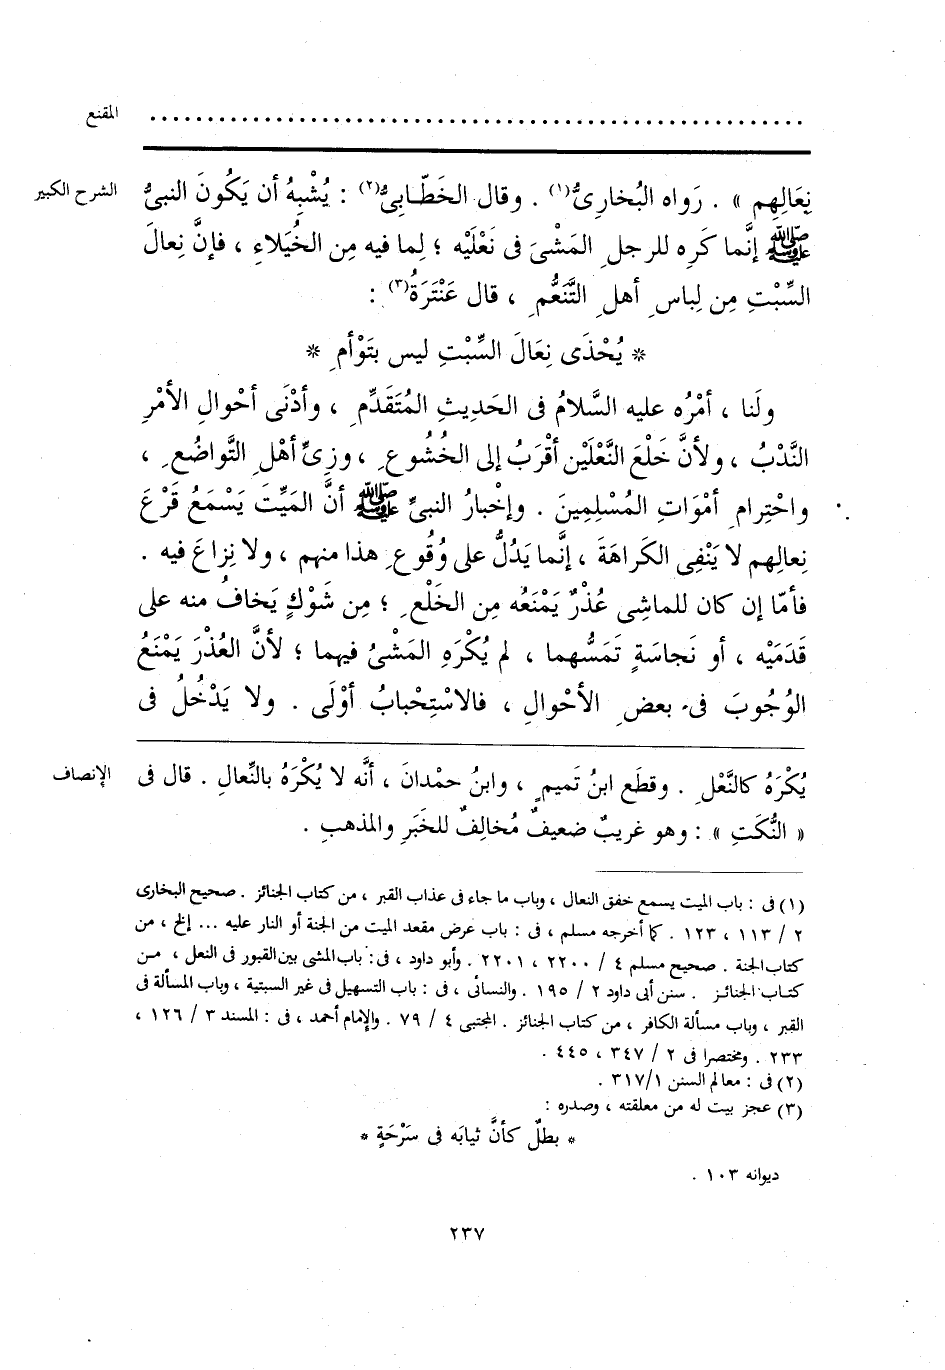 المقنع ................................................................
الشرح الكبير نِعَالِهِم » . رَواه البُخارِىُّ(١) . وقال الخَطّابِىُّ(٢) : يُشْبِهُ أن يَكُونَ النبىُّ
ﷺ إنَّما كَرِه للرجلِ المَشْىَ فى نَعْلَيْه ؛ لِما فيه مِن الخُيَلاءِ ، فإنَّ نِعالَ
السِّبْتِ مِن لِباسِ أهلِ التَّنَعُّمِ ، قال عَنْتَرَةُ(٣) :
* يُحْذَى نِعَالَ السِّبْتِ ليس بتَوْأمِ *
ولَنا ، أمْرُه عليه السَّلامُ فى الحَدِيثِ المُتَقَدِّمِ ، وأدْنَى أحْوالِ الأمْرِ
النَّدْبُ ، ولأنَّ خَلْعَ النَّعْلَيْن أقْرَبُ إلى الخُشُوعِ ، وزِىِّ أهْلِ التَّواضُعِ ،
واحْتِرامِ أمْوَاتِ المُسْلِمِينَ . وإخْبارُ النبىِّ ﷺ أنَّ المَيِّتَ يَسْمَعُ قَرْعَ
نِعالِهم لا يَنْفِى الكَراهَةَ ، إنَّما يَدُلُّ على وُقُوعِ هذا منهم ، ولا نِزاعَ فيه .
فأمّا إن كان للماشِى عُذْرٌ يَمْنَعُه مِن الخَلْعِ ؛ مِن شَوْكٍ يَخافُ منه على
قَدَمَيْه ، أو نَجاسَةٍ تَمَسُّهما ، لم يُكْرَهِ المَشْىُ فيهما ؛ لأنَّ العُذْرَ يَمْنَعُ
الوُجُوبَ فى بعضِ الأحْوالِ ، فالاسْتِحْبابُ أوْلَى . ولا يَدْخُلُ فى
الإنصاف يُكْرَهُ كالنَّعْلِ . وقطَع ابنُ تَميمٍ ، وابنُ حمْدانَ ، أنَّه لا يُكْرَهُ بالنِّعالِ . قال فى
« النُّكَتِ » : وهو غريبٌ ضعيفٌ مُخالِفٌ للخَبَرِ والمذهبِ .
(١) فى : باب الميت يسمع خفق النعال ، وباب ما جاء فى عذاب القبر ، من كتاب الجنائز . صحيح البخارى
٢ / ١١٣ ، ١٢٣ . كما أخرجه مسلم ، فى : باب عرض مقعد الميت من الجنة أو النار عليه ... إلخ ، من
كتاب الجنة . صحيح مسلم ٤ / ٢٢٠٠ ، ٢٢٠١ . وأبو داود ، فى : باب المشى بين القبور فى النعل ، من
كتاب الجنائز . سنن أبى داود ٢ / ١٩٥ . والنسائى ، فى : باب التسهيل فى غير السبتية ، وباب المسألة فى
القبر ، وباب مسألة الكافر ، من كتاب الجنائز . المجتبى ٤ / ٧٩ . والإمام أحمد ، فى : المسند ٣ / ١٢٦ ،
٢٣٣ . ومختصرا فى ٢ / ٣٤٧ ، ٤٤٥ .
(٢) فى : معالم السنن ١/ ٣١٧ .
(٣) عجز بيت له من معلقته ، وصدره :
* بطلٌ كأنَّ ثيابَه فى سَرْحَةٍ *
ديوانه ١٠٣ .
٢٣٧